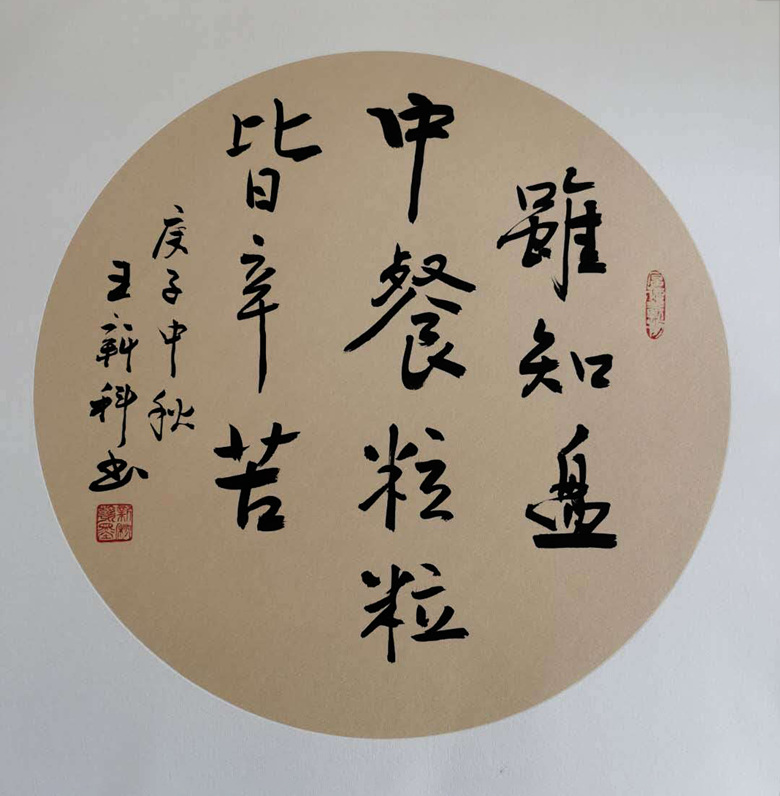 雖知盤
中餐粒粒
皆辛苦
庚子中秋
王新科书